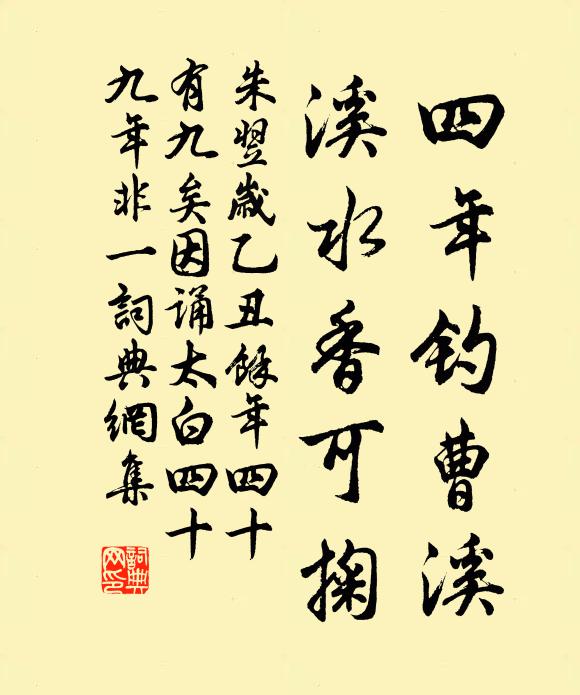 四年钓曹溪
溪水香可掬
朱翌歲乙丑餘年四十
有九矣因诵太白四十
九年非一詞典網集
詞典
网印